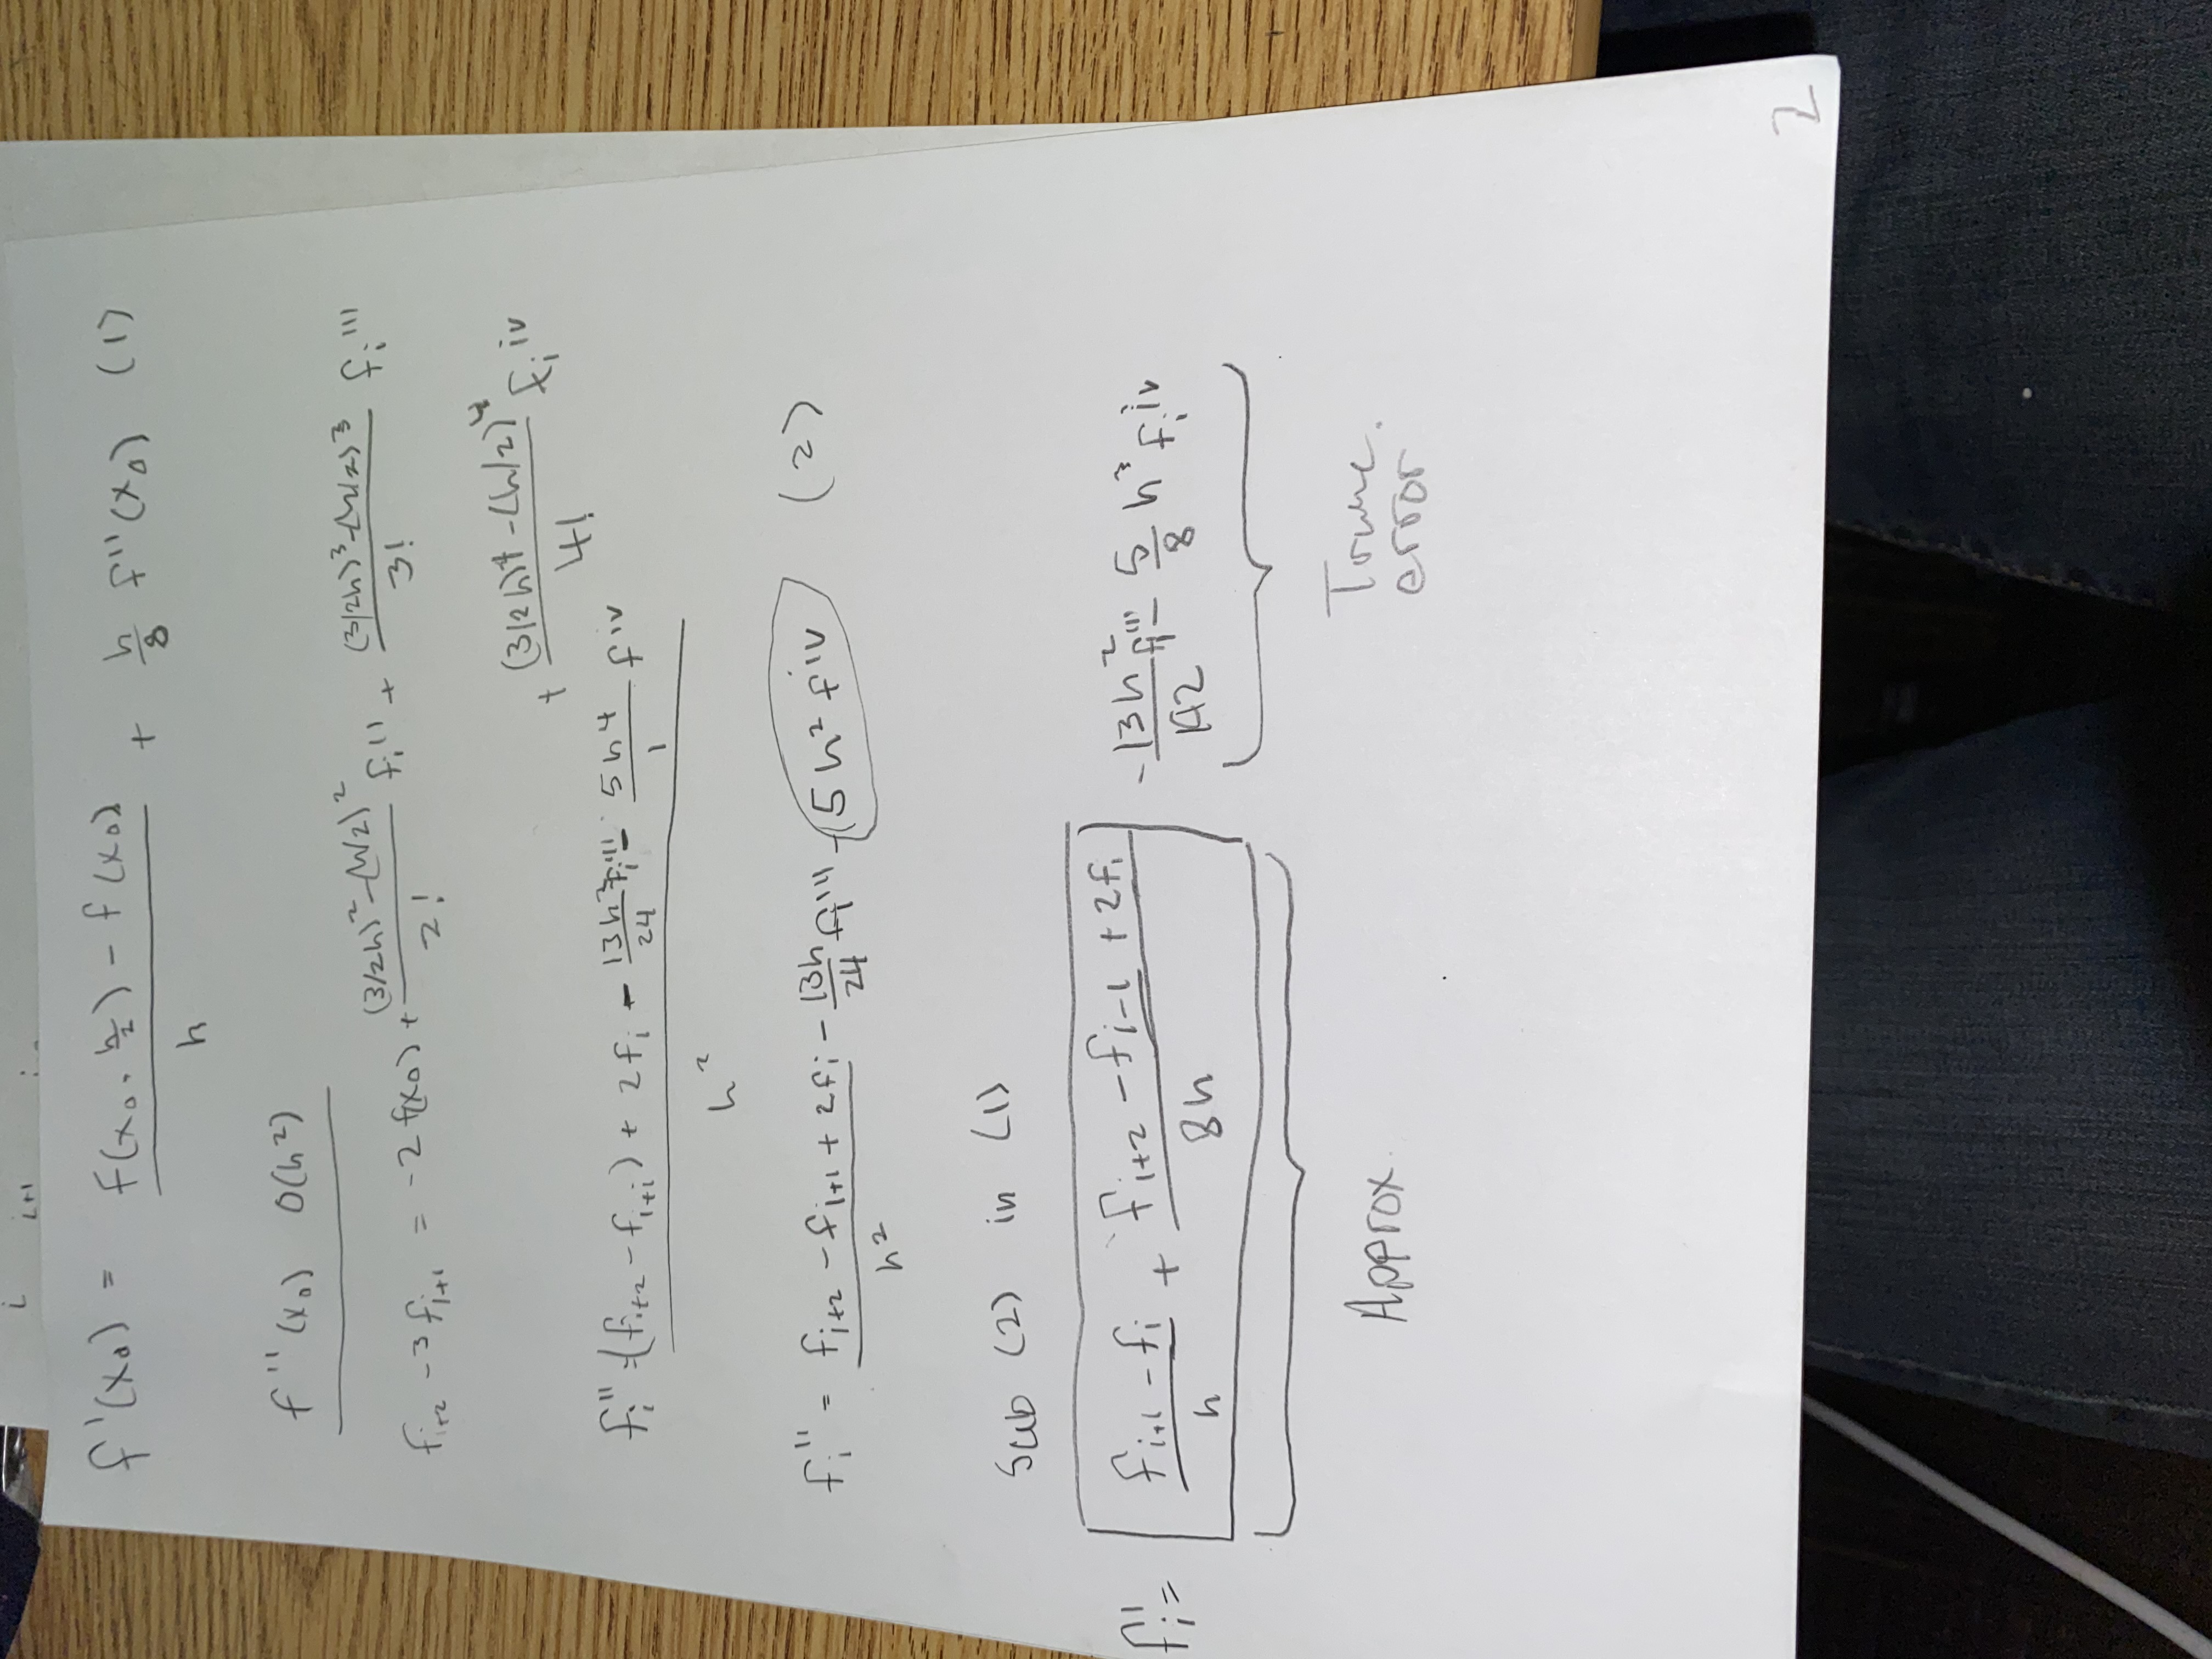 i i+1
f'(x₀) = f(x₀ + h/2) - f(x₀) / h + h/8 f''(x₀) (1)
f''(x₀) O(h²)
fᵢ₊₂ - 3fᵢ₊₁ = -2f(x₀) + (3/2h)² - (h/2)² / 2! fᵢ'' + (3/2h)³ - (h/2)³ / 3! fᵢ'''
+ (3/2h)⁴ - (h/2)⁴ / 4! fᵢ^iv
fᵢ'' = (fᵢ₊₂ - fᵢ₊ᵢ) + 2fᵢ - 13h³/24 fᵢ''' - 5h⁴/1 f^iv / h²
fᵢ'' = fᵢ₊₂ - fᵢ₊₁ + 2fᵢ / h² - 13h/24 fᵢ''' - 5h² f^iv (2)
Sub (2) in (1)
fᵢ' = fᵢ₊₁ - fᵢ / h + fᵢ₊₂ - fᵢ₋₁ + 2fᵢ / 8h - 13h²/192 fᵢ''' - 5/8 h³ fᵢ^iv
Approx. Trunc. error
2